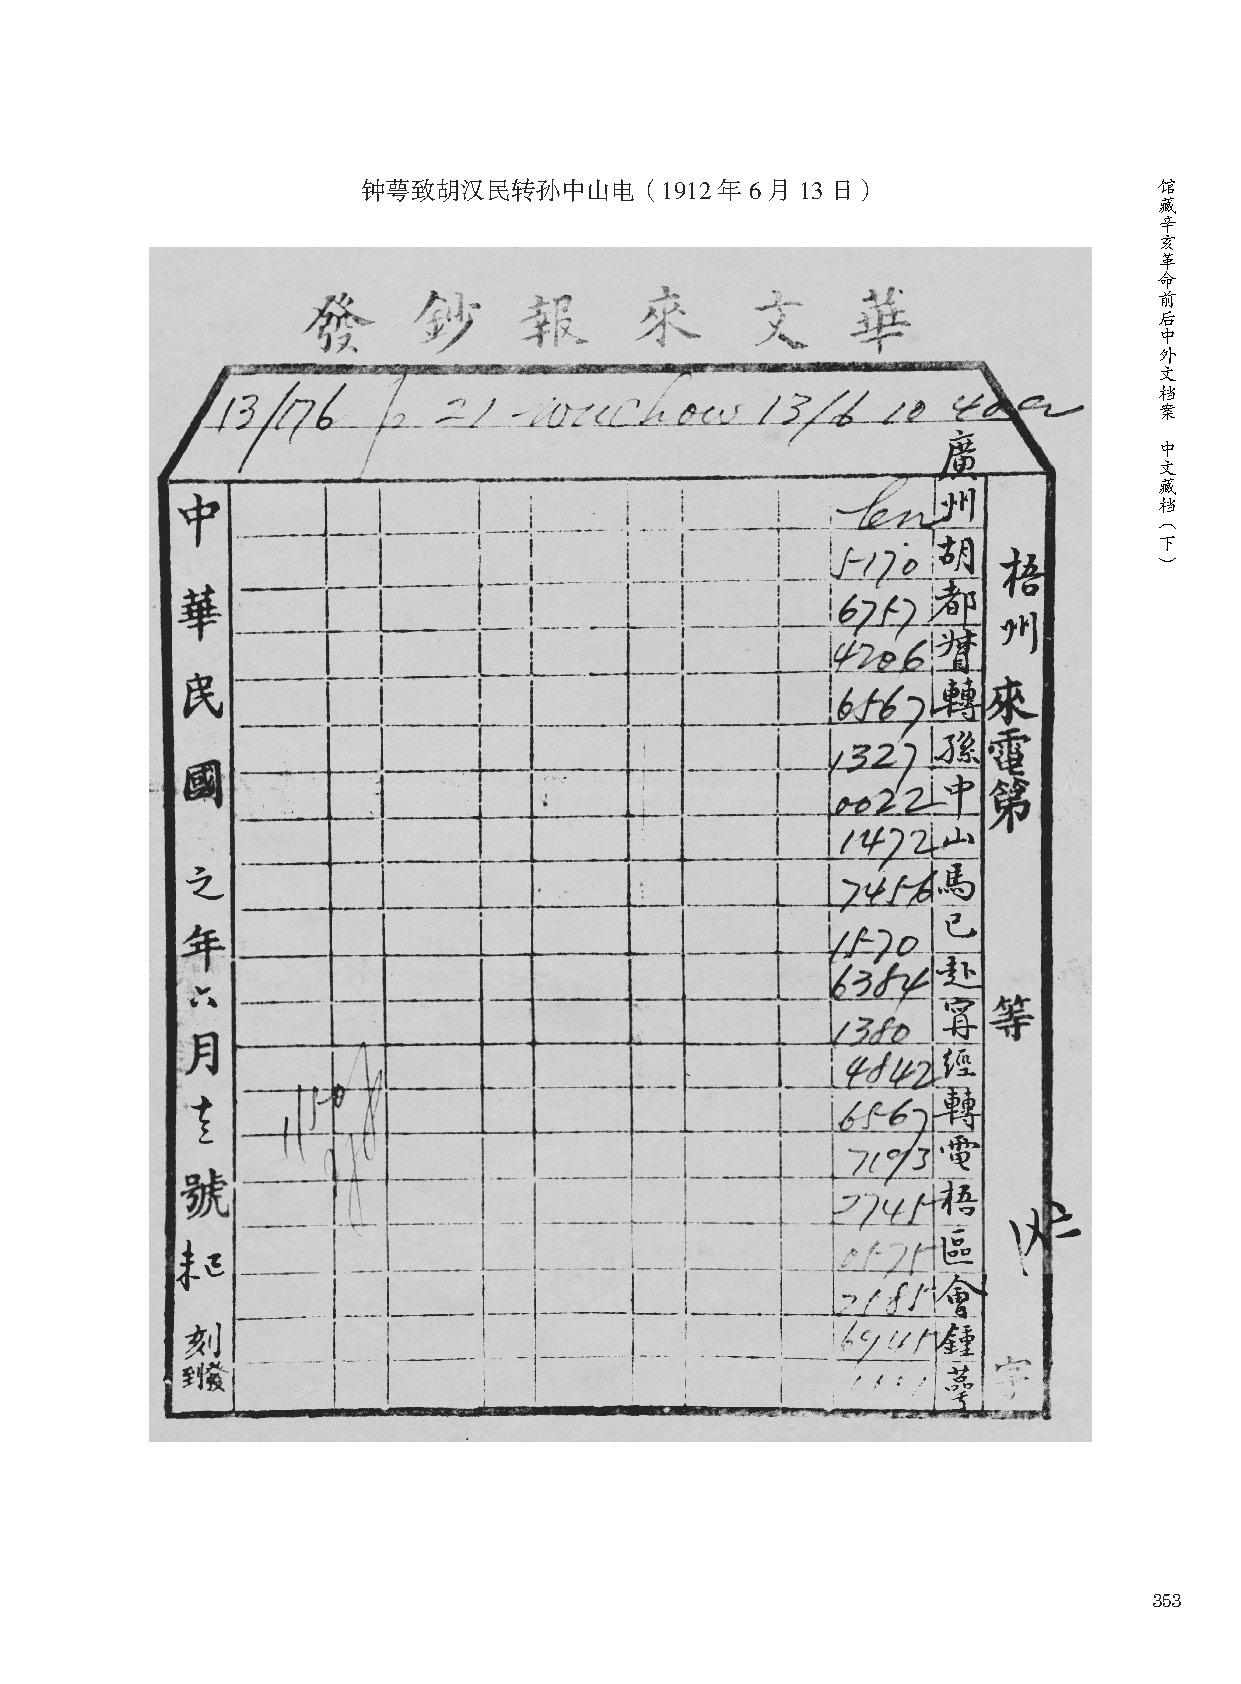 钟萼致胡汉民转孙中山电（1912年6月13日）
馆藏辛亥革命前后中外文档案 中文藏档（下）
發鈔報來文華
13/176 21 Wuchow 13/6 10 40a
梧州來電第 等 字
廣州胡都督轉孫中山馬已赴甯經轉電梧區會鍾蕚
5170
6757
4206
6567
1327
0022
1472
7456
1570
6384
1380
4842
6567
7193
2745
0575
7185
中華民國 之年六月 號 刻到發
353